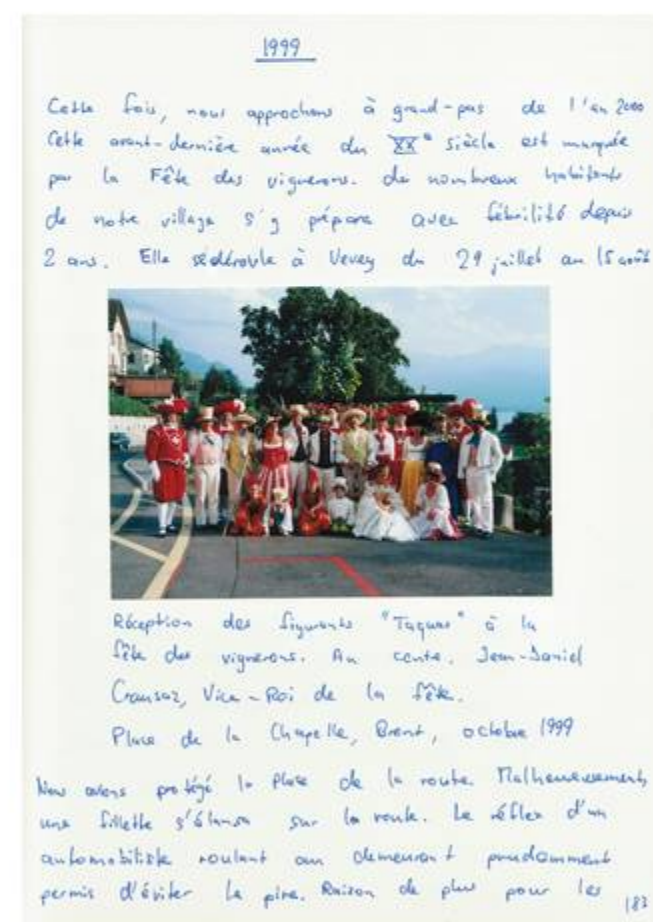 1999
Cette fois, nous approchons à grand-pas de l'an 2000
Cette avant-dernière année du XXe siècle est marquée
par la Fête des vignerons. de nombreux habitants
de notre village s'y prépare avec fébrilité depuis
2 ans. Elle sedéroule à Vevey du 29 juillet au 15 août
Réception des figurants "Taquas" à la
fête des vignerons. Au cente, Jean-Daniel
Cransaz, Vice-Roi de la fête.
Place de la Chapelle, Brent, octobre 1999
Nous avons protégé la Place de la route. Malheureusement,
une fillette s'élança sur la route. Le réflex d'un
automobiliste roulant au demeurant prudamment
permis d'éviter le pire. Raison de plus pour les
183